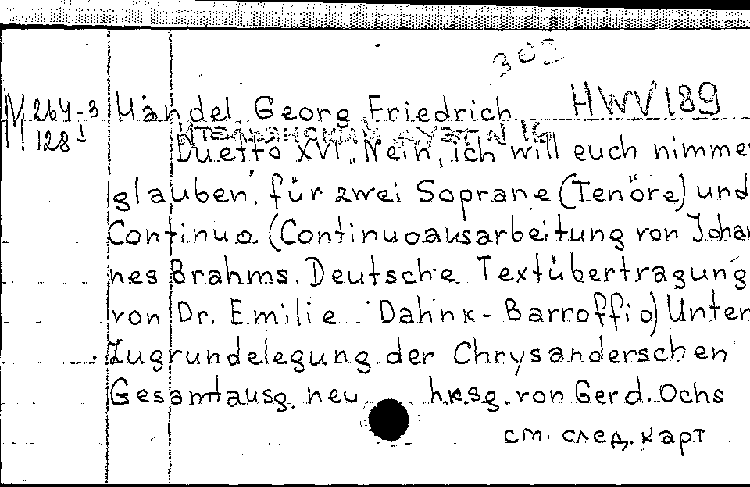 303
М 264-3 Händel, Georg Friedrich HWV 189
128 1 ИТАЛЬЯНСКИЙ ДУЭТ N 16
Duetto XVI. Nein, ich will euch nimmer
glauben, für zwei Soprane (Tenöre) und
Continuo. (Continuoausarbeitung von Johan
nes Brahms. Deutsche Textübertragung
von Dr. Emilie Dahnk-Barroffio) Unter
Zugrundelegung der Chrysanderschen
Gesamtausg. neu hrsg. von Gerd. Ochs
см. след. карт